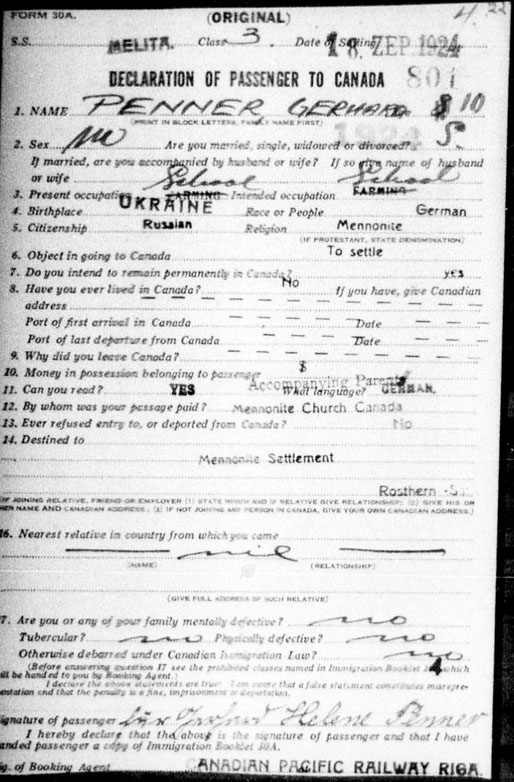 FORM 30A. (ORIGINAL) 4.22
S.S. MELITA. Class 3. Date of Sailing 18. ZEP 1924
DECLARATION OF PASSENGER TO CANADA 801
1. NAME PENNER GERHARD 10
(PRINT IN BLOCK LETTERS, FAMILY NAME FIRST)
1924
2. Sex M Are you married, single, widowed or divorced? S.
If married, are you accompanied by husband or wife? If so give name of husband
or wife School School
3. Present occupation FARMING Intended occupation FARMING
4. Birthplace UKRAINE Race or People German
5. Citizenship Russian Religion Mennonite
(IF PROTESTANT, STATE DENOMINATION)
6. Object in going to Canada To settle
7. Do you intend to remain permanently in Canada? yes
8. Have you ever lived in Canada? No If you have, give Canadian
address
Port of first arrival in Canada Date
Port of last departure from Canada Date
9. Why did you leave Canada?
10. Money in possession belonging to passenger $
Accompanying Parents
11. Can you read? YES What language? GERMAN.
12. By whom was your passage paid? Mennonite Church Canada
13. Ever refused entry to, or deported from Canada? No
14. Destined to
Mennonite Settlement
Rosthern
IF JOINING RELATIVE, FRIEND OR EMPLOYER (1) STATE WHICH AND IF RELATIVE GIVE RELATIONSHIP; (2) GIVE HIS OR
HER NAME AND CANADIAN ADDRESS; (3) IF NOT JOINING ANY PERSON IN CANADA, GIVE YOUR OWN CANADIAN ADDRESS.)
16. Nearest relative in country from which you came
nil
(NAME) (RELATIONSHIP)
(GIVE FULL ADDRESS OF SUCH RELATIVE)
7. Are you or any of your family mentally defective? no
Tubercular? no Physically defective? no
Otherwise debarred under Canadian Immigration Law? no
(Before answering question 17 see the prohibited classes named in Immigration Booklet which
will be handed to you by Booking Agent.)
I declare the above statements are true. I am aware that a false statement constitutes misrepre-
entation and that the penalty is a fine, imprisonment or deportation.
ignature of passenger für Gerhard Helene Penner
I hereby declare that the above is the signature of passenger and that I have
anded passenger a copy of Immigration Booklet 30A.
ig. of Booking Agent CANADIAN PACIFIC RAILWAY RIGA.